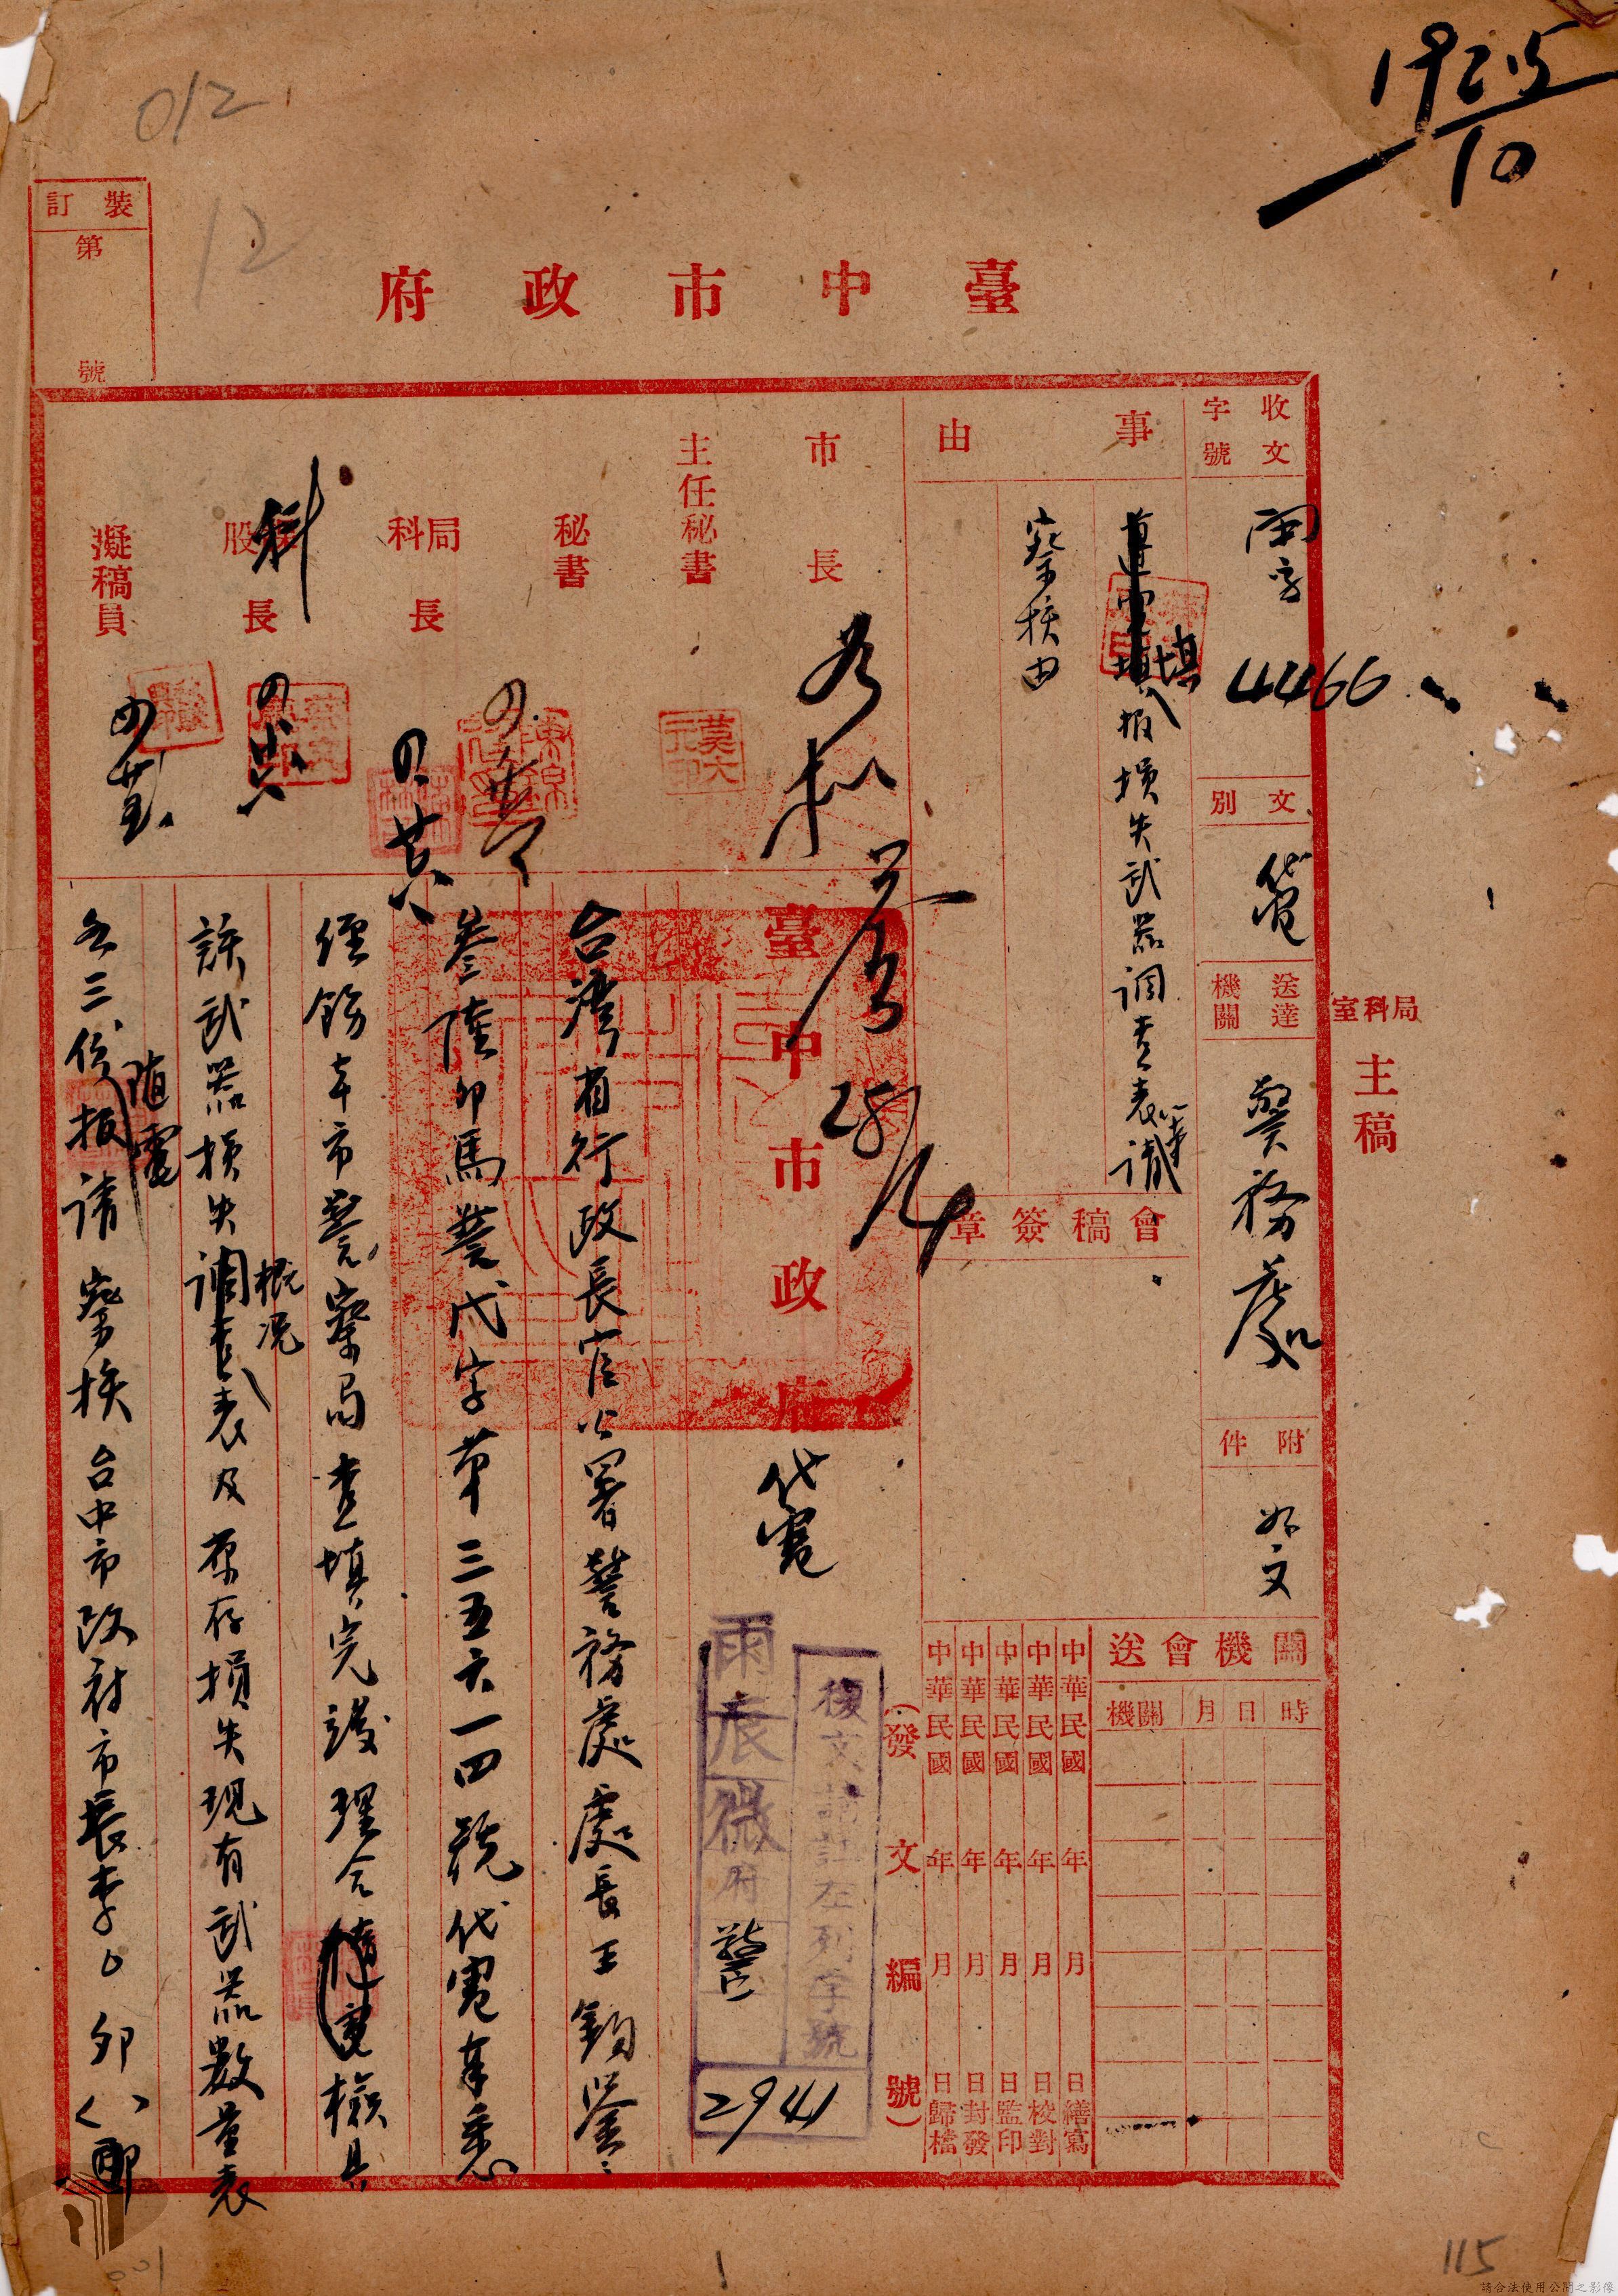 1925
10
012
12
裝訂
第
號
臺中市政府
局科室
主稿
收文
字號
4466
文別
代電
送達
機關
警務處
附件
如文
事
由
填報損失武器調查表請
察核由
會稿簽章
關機會送
時
日
月
關機
中華民國 年 月 日繕寫
中華民國 年 月 日校對
中華民國 年 月 日監印
中華民國 年 月 日封發
中華民國 年 月 日歸檔
(發文編號)
市長
28/4
主任秘書
秘書
局科長
股長
科
擬稿員
臺中市政府代電
復文請註左列字號
雨辰微府
警
2941
台灣省行政長官公署警務處處長王鈞鑒:
叁陸卯馬警代字第三五六一四號代電奉悉
經飭本市警察局查填完竣理合檢具
許武器損失概況表及原存損失現有武器數量表
各三份隨電報請察核台中市政府市長李
115
請合法使用公開之影像